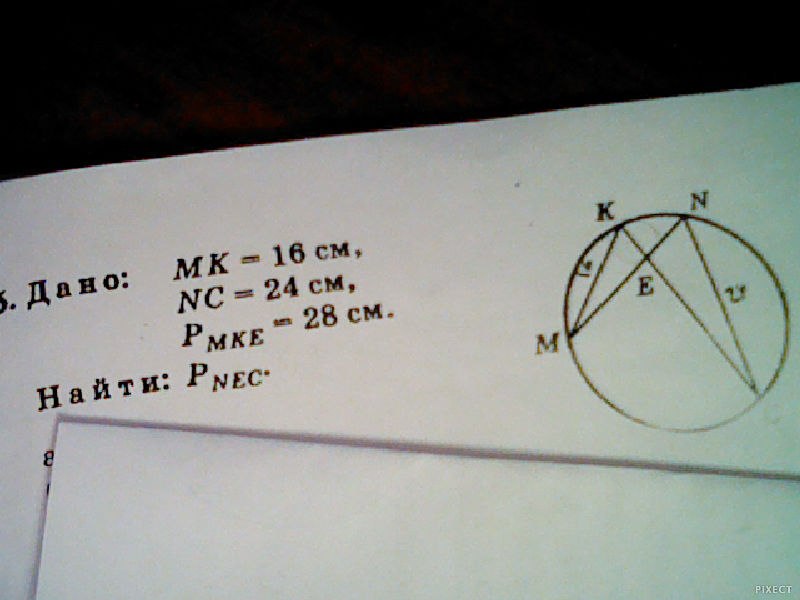 Дано: MK = 16 см,
NC = 24 см,
P MKE = 28 см.
Найти: P NEC.
K
N
E
M
PIXECT